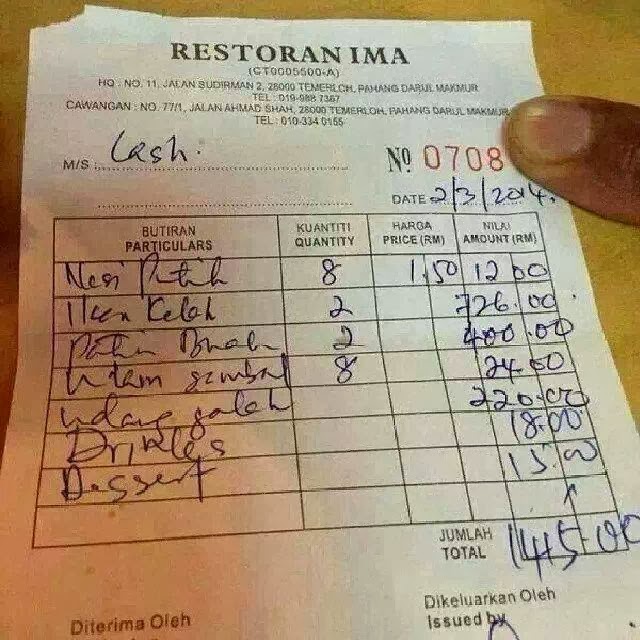 RESTORAN IMA
(CT0005500-A)
HQ : NO. 11, JALAN SUDIRMAN 2, 28000 TEMERLOH, PAHANG DARUL MAKMUR
TEL : 019-988 7367
CAWANGAN : NO. 77/1, JALAN AHMAD SHAH, 28000 TEMERLOH, PAHANG DARUL MAKMUR
TEL : 010-334 0155
M/S : Cash. Nº 0708
DATE 2/3/2014.
BUTIRAN PARTICULARS KUANTITI QUANTITY HARGA PRICE (RM) NILAI AMOUNT (RM)
Nasi Putih 8 1.50 12 00
Ikan Kelah 2 726.00
Patin Buah 2 400.00
Ulam sambal 8 24.00
Udang galah 220.00
Drinks 18.00
Dessert 15.00
JUMLAH TOTAL 1415.00
Diterima Oleh
Dikeluarkan Oleh
Issued by